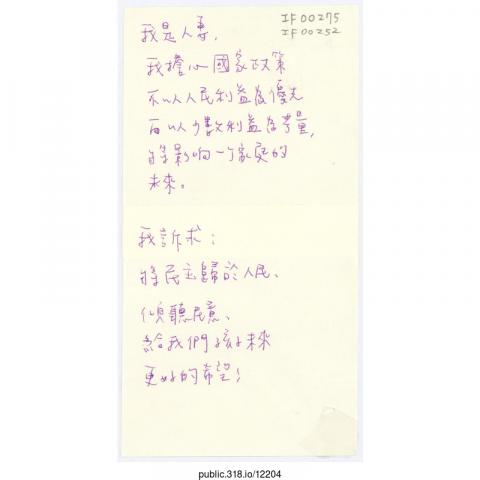 IF00275
IF00252
我是人妻，
我擔心國家政策
不以人民利益為優先
而以少數利益為考量，
將影响一个家庭的
未來。
我訴求：
將民主歸於人民、
傾聽民意、
給我們孩子未來
更好的希望！
public.318.io/12204